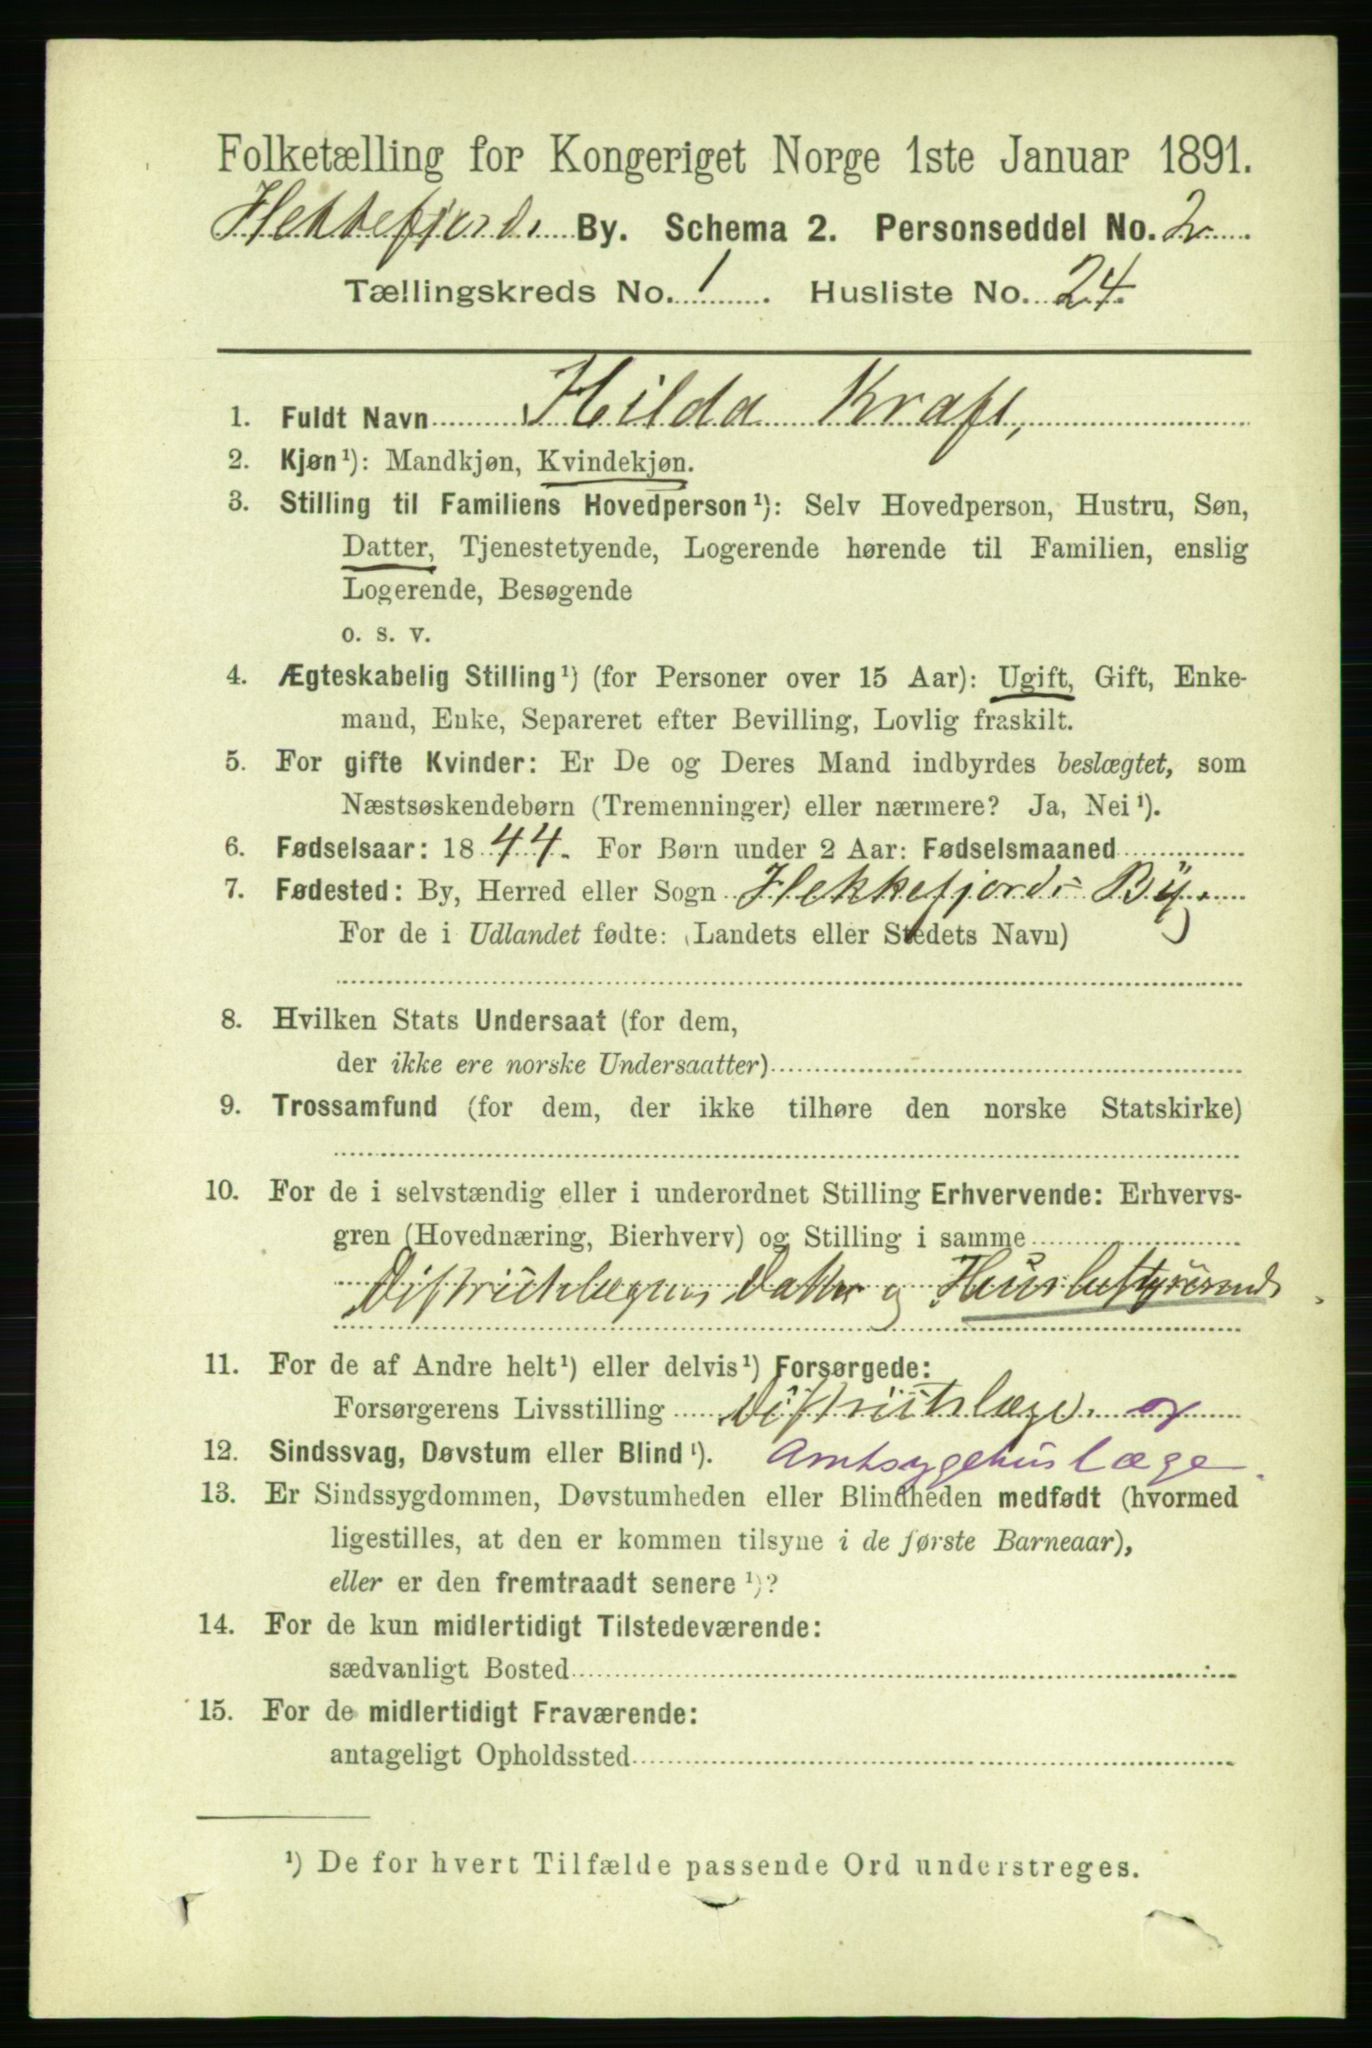 Folketælling for Kongeriget Norge 1ste Januar 1891.
Flekkefjords By. Schema 2. Personseddel No. 2.
Tællingskreds No. 1. Husliste No. 24.
1. Fuldt Navn Hilda Kraft,
2. Kjøn¹): Mandkjøn, Kvindekjøn.
3. Stilling til Familiens Hovedperson¹): Selv Hovedperson, Hustru, Søn,
Datter, Tjenestetyende, Logerende hørende til Familien, enslig
Logerende, Besøgende
o. s. v.
4. Ægteskabelig Stilling¹) (for Personer over 15 Aar): Ugift, Gift, Enke-
mand, Enke, Separeret efter Bevilling, Lovlig fraskilt.
5. For gifte Kvinder: Er De og Deres Mand indbyrdes beslægtet, som
Næstsøskendebørn (Tremenninger) eller nærmere? Ja, Nei¹).
6. Fødselsaar: 1844. For Børn under 2 Aar: Fødselsmaaned
7. Fødested: By, Herred eller Sogn Flekkefjords By.
For de i Udlandet fødte: (Landets eller Stedets Navn)
8. Hvilken Stats Undersaat (for dem,
der ikke ere norske Undersaatter)
9. Trossamfund (for dem, der ikke tilhøre den norske Statskirke)
10. For de i selvstændig eller i underordnet Stilling Erhvervende: Erhvervs-
gren (Hovednæring, Bierhverv) og Stilling i samme
Distriktslægens Datter og Husbestyrerinde
11. For de af Andre helt¹) eller delvis¹) Forsørgede:
Forsørgerens Livsstilling Distriktslæge og
12. Sindssvag, Døvstum eller Blind¹). Amtsygehuslæge.
13. Er Sindssygdommen, Døvstumheden eller Blindheden medfødt (hvormed
ligestilles, at den er kommen tilsyne i de første Barneaar),
eller er den fremtraadt senere¹)?
14. For de kun midlertidigt Tilstedeværende:
sædvanligt Bosted
15. For de midlertidigt Fraværende:
antageligt Opholdssted
¹) De for hvert Tilfælde passende Ord understreges.